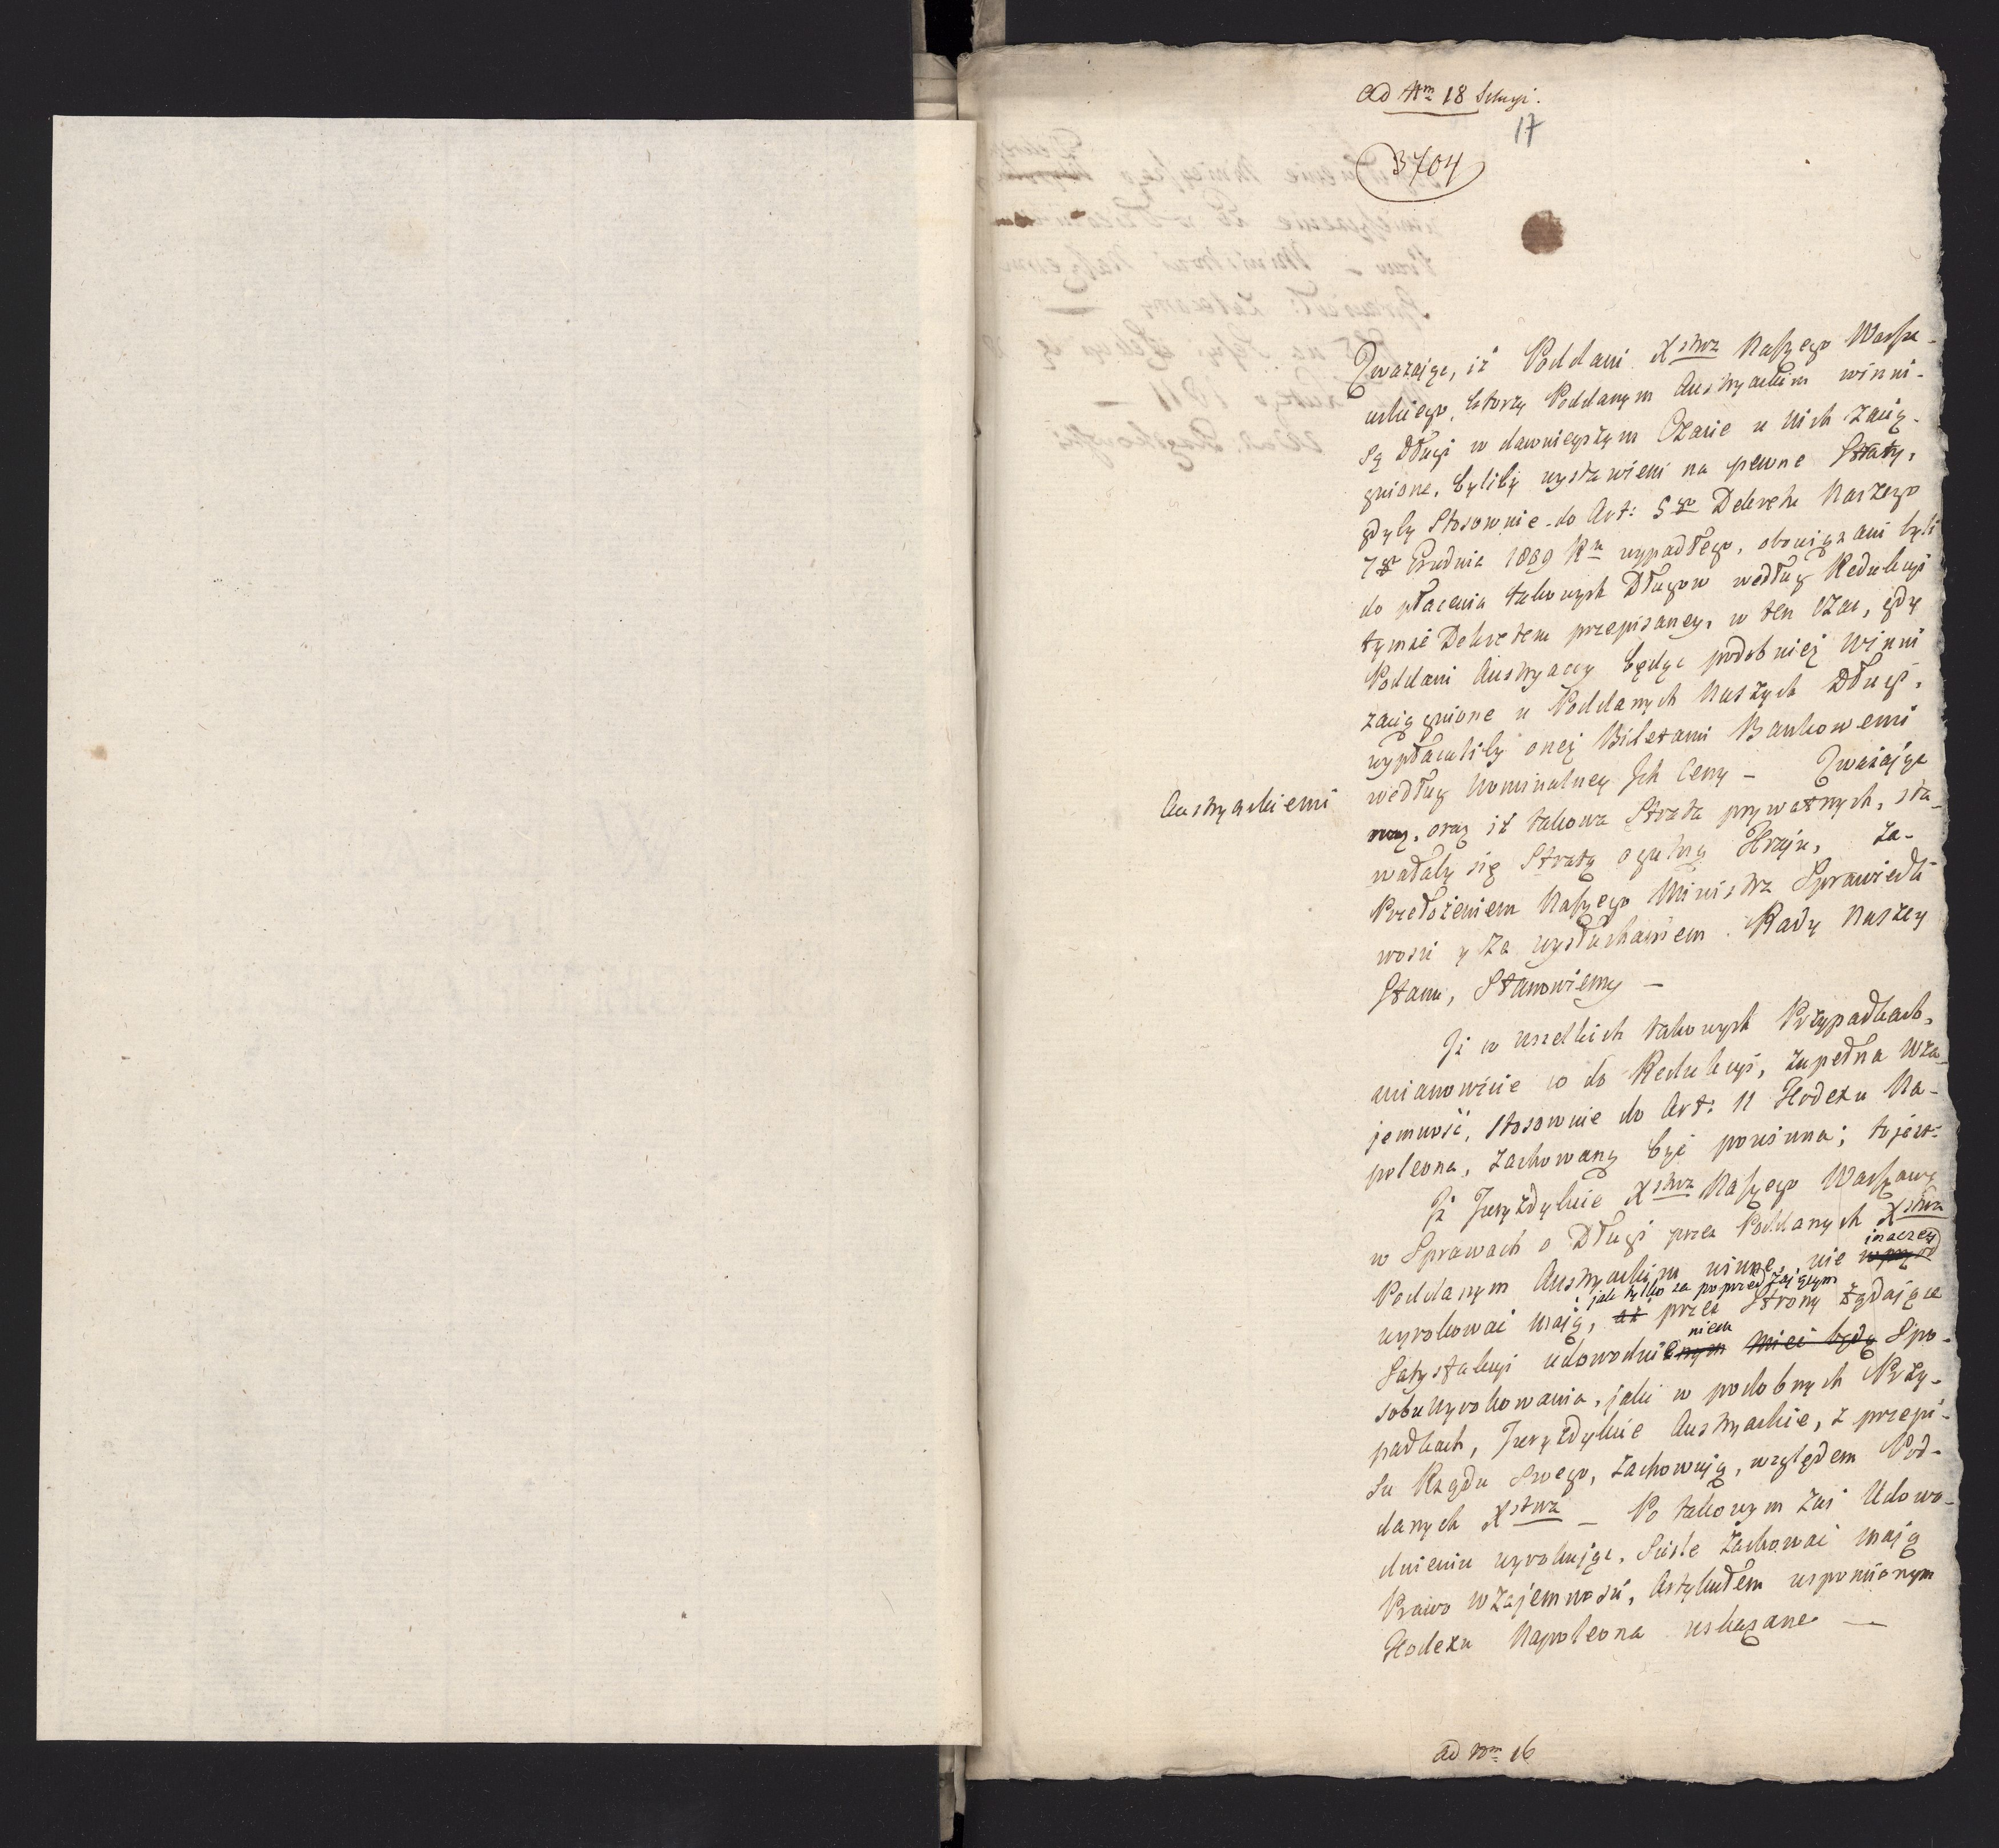 ad Nm 18 Sekcyi.
17
3704
Zważaiąc, iż Poddani Xstwa Naszego Warsza-
wskiego, którzy Poddanym Austryackim winni-
są Długi w dawnieyszym Czasie u nich zacią-
gnione, byliby wystawieni na pewne Straty,
gdyby Stosownie do Art: 5go Dekretu Naszego
7go Grudnia 1809 Ru wypadłego, obowiązani byli
do płacenia takowych Długow według Redukcyi
tymże Dekretem przepisaney, w ten czas, gdy
Poddani Austryaccy będąc podobnież winni
zaciągnione u Poddanych Naszych Długi,
wypłacaliby oneż Biletami Bankowemi
Austryackiemi
według Nominalney Ich Ceny – Zważaiąc
oraz iż takowa Strata prywatnych, sta-
wałaby się Stratą ogulną Kraju, Za-
Przełożeniem Naszego Ministra Sprawiedli
wości y Za wysłuchaniem Rady Naszey
Stanu, Stanowiemy –
Iż w wszelkich takowych Przypadkach,
mianowicie co do Redukcyi, zupełna Wza-
jemność, stosownie do Art: 11 Kodexu Na-
poleona, zachowaną być powinna; to jest:
Iż Juryzdykcie Xstwa Naszego Warszaws
w Sprawach o Długi przez Poddanych Xstwa
inaczey
Poddanym Austryackim winne, nie wprzod
jak tylko za poprzedzającym
wyrokować mają, aż przez Strony żądające
niem
Satysfakcyi udowodnionym mieć będą Spo-
sobu Wyrokowania, jaki w podobnych Przy-
padkach, Juryzdykcie Austryackie, z przepi-
su Rządu Swego, zachowują, względem Pod-
danych Xstwa – Po takowym zaś Udowo-
dnieniu wyrokując, Sciśle zachować mają
Prawo Wzajemności, Artykułem wspomnionym
Kodexu Napoleona wskazane —
ad Nm 16